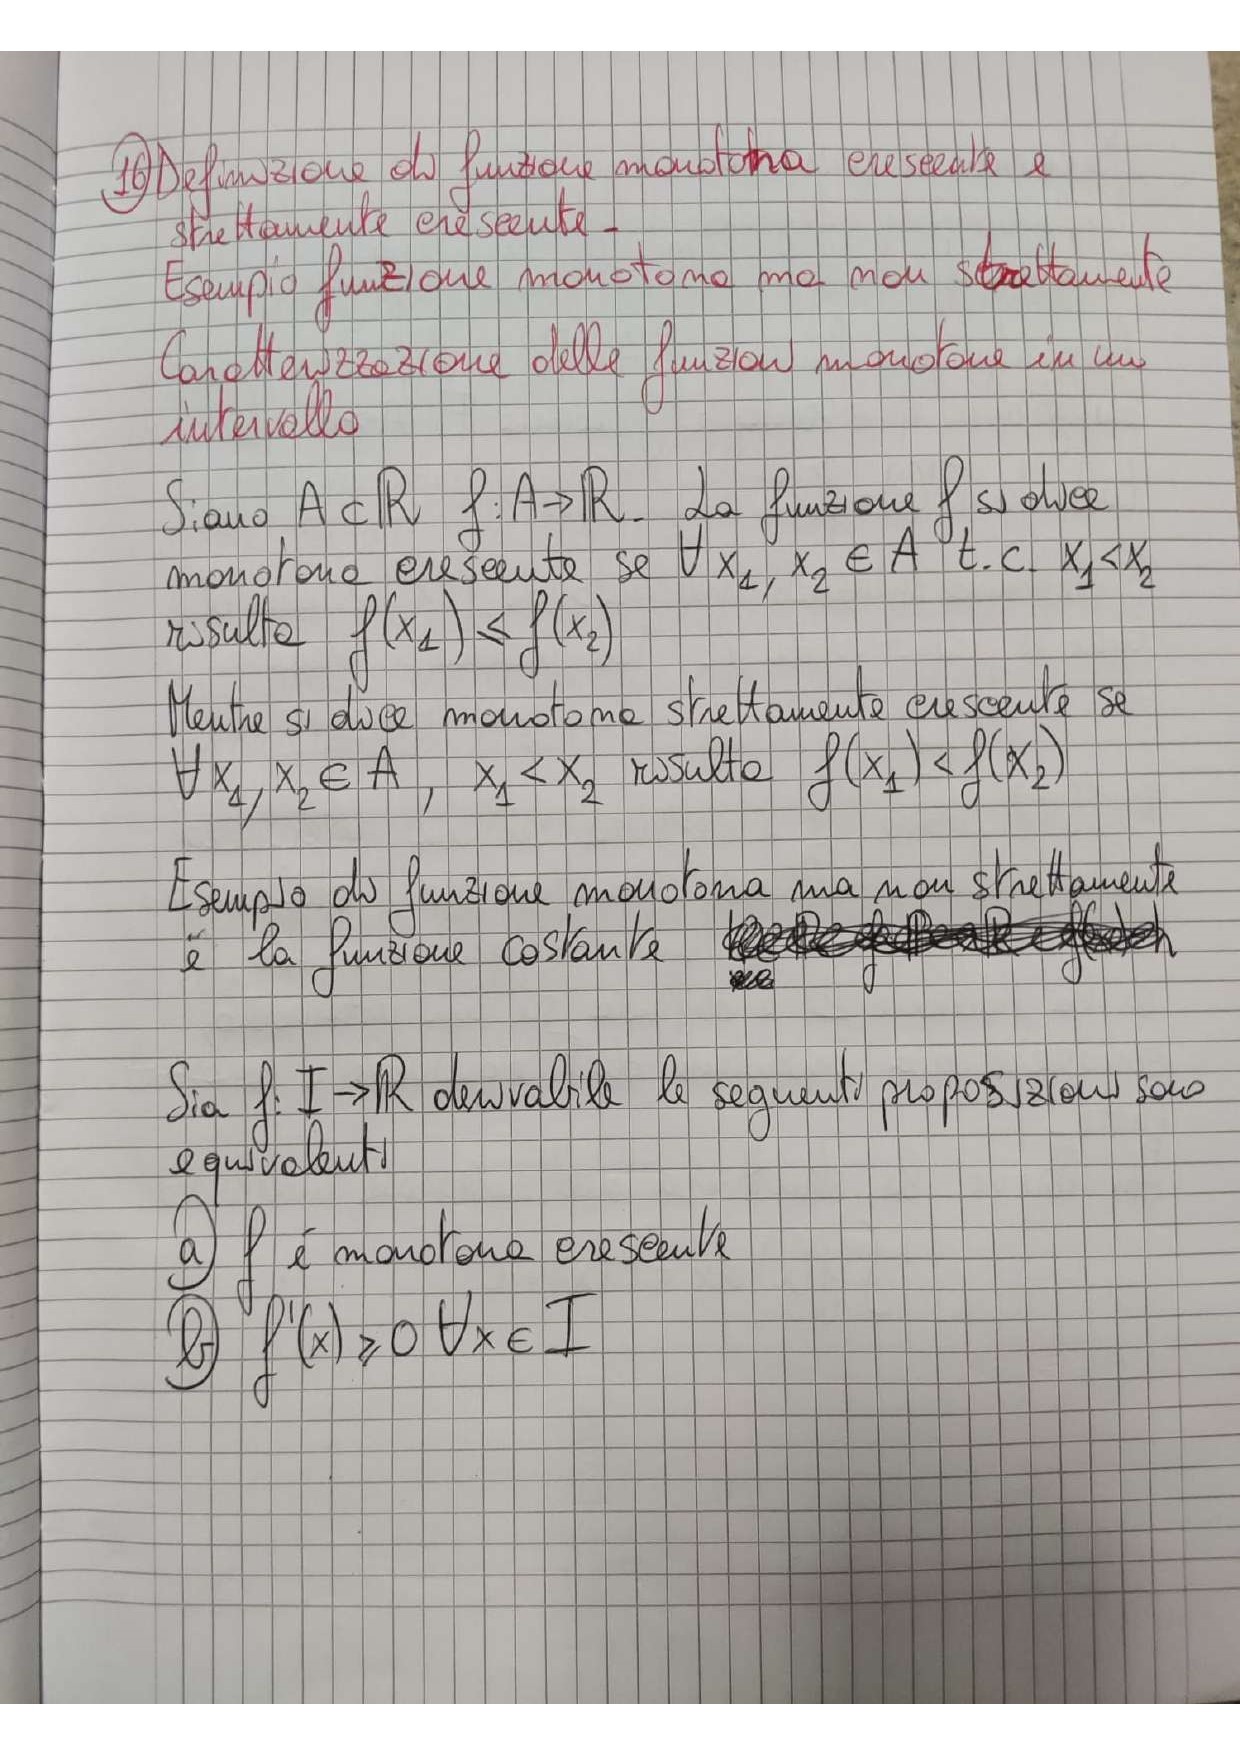 16) Definizione di funzione monotona crescente e
strettamente crescente -
Esempio funzione monotona ma non strettamente
Caratterizzazione delle funzioni monotone in un
intervallo
Siano A ⊂ ℝ f: A → ℝ. La funzione f si dice
monotona crescente se ∀ x₁, x₂ ∈ A t.c. x₁ < x₂
risulta f(x₁) ≤ f(x₂)
Mentre si dice monotona strettamente crescente se
∀ x₁, x₂ ∈ A, x₁ < x₂ risulta f(x₁) < f(x₂)
Esempio di funzione monotona ma non strettamente
è la funzione costante
Sia f: I → ℝ derivabile le seguenti proposizioni sono
equivalenti
a) f è monotona crescente
b) f'(x) ≥ 0 ∀ x ∈ I